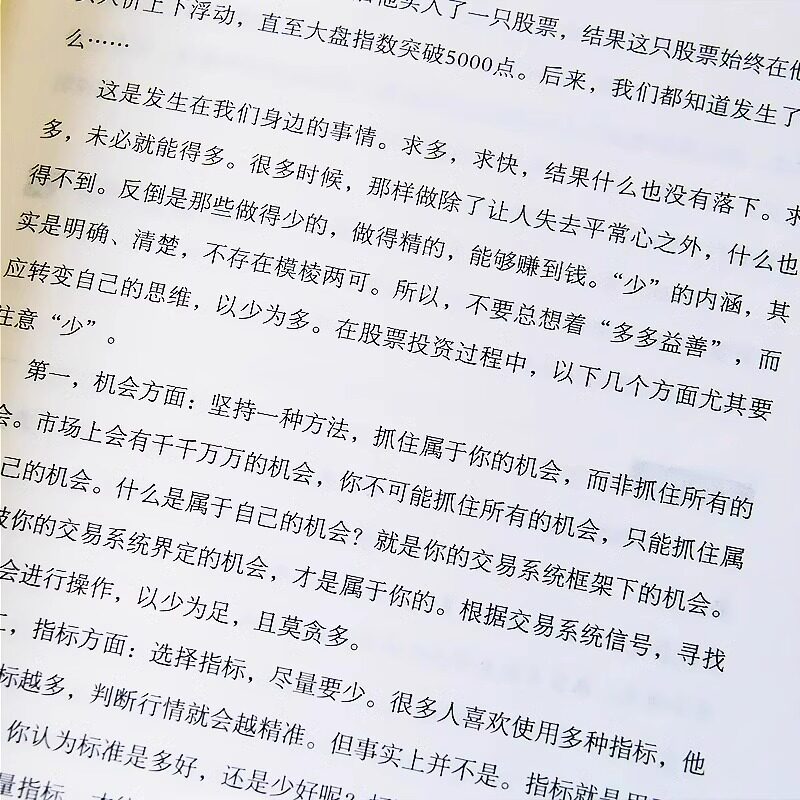 他买入了一只股票，结果这只股票始终在他
买入价上下浮动，直至大盘指数突破5000点。后来，我们都知道发生了
么……
这是发生在我们身边的事情。求多，求快，结果什么也没有落下。求
多，未必就能得多。很多时候，那样做除了让人失去平常心之外，什么也
得不到。反倒是那些做得少的，做得精的，能够赚到钱。“少”的内涵，其
实是明确、清楚，不存在模棱两可。所以，不要总想着“多多益善”，而
应转变自己的思维，以少为多。在股票投资过程中，以下几个方面尤其要
注意“少”。
第一，机会方面：坚持一种方法，抓住属于你的机会，而非抓住所有的
会。市场上会有千千万万的机会，你不可能抓住所有的机会，只能抓住属
己的机会。什么是属于自己的机会？就是你的交易系统框架下的机会。
被你的交易系统界定的机会，才是属于你的。根据交易系统信号，寻找
会进行操作，以少为足，且莫贪多。
二，指标方面：选择指标，尽量要少。很多人喜欢使用多种指标，他
标越多，判断行情就会越精准。但事实上并不是。指标就是用
你认为标准是多好，还是少好呢？
量指标，